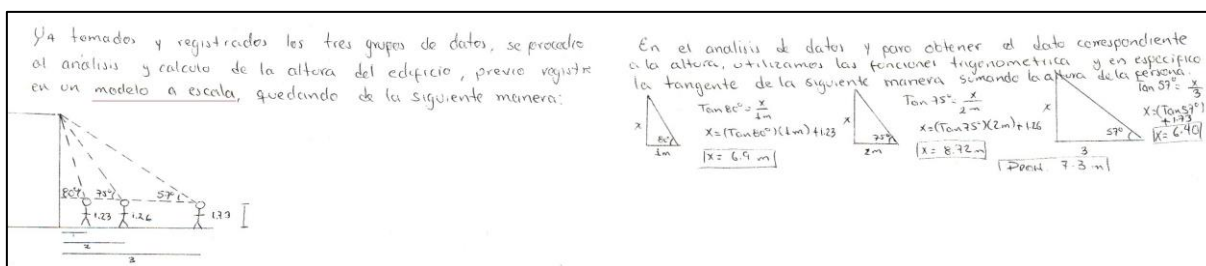 Ya tomados y registrados los tres grupos de datos, se procedio
al analisis y calculo de la altura del edificio, previo registro
en un modelo a escala, quedando de la siguiente manera:
80° 75° 57°
1.23 1.26 1.73
1
2
3
En el analisis de datos y para obtener el dato correspondiente
a la altura, utilizamos las funciones trigonometrica y en especifico
la tangente de la siguiente manera sumando la altura de la persona.
x
80°
1m
Tan 80° = x/1m
x=(Tan 80°)(1m)+1.23
x= 6.9 m
x
75°
2m
Tan 75° = x/2m
x=(Tan 75°)(2m)+1.26
x= 8.72 m
x
57°
3
Tan 57° = x/3
x=(Tan 57°)
+1.73
x= 6.40
7.3 m